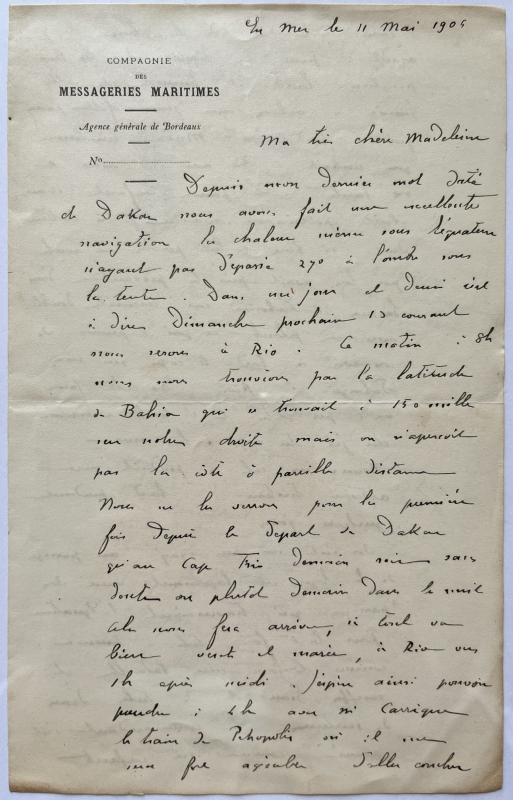 En mer le 11 Mai 190
COMPAGNIE
DES
MESSAGERIES MARITIMES
Agence générale de Bordeaux
No
Ma très chère Madeleine
Depuis mon dernier mot daté
de Dakar nous avons fait une excellente
navigation la chaleur même sous l'équateur
n'ayant pas dépassé 27° à l'ombre sous
la tente. Dans un jour et demi c'est
à dire Dimanche prochain 13 courant
nous serons à Rio. Ce matin à 8h
nous nous trouvions par la latitude
de Bahia qui se trouvait à 150 mille
sur notre droite mais on n'aperçoit
pas la côte à pareille distance
Nous ne la verrons pour la première
fois depuis le départ de Dakar
qu'au Cap Frio demain soir sans
doute ou plutôt demain dans la nuit
Cela nous fera arriver, si tout va
bien vent et marée, à Rio vers
1h après midi. J'espère ainsi pouvoir
prendre à 4h avec Mr Carrique
le train de Petropolis où il me
sera fort agréable d'aller coucher